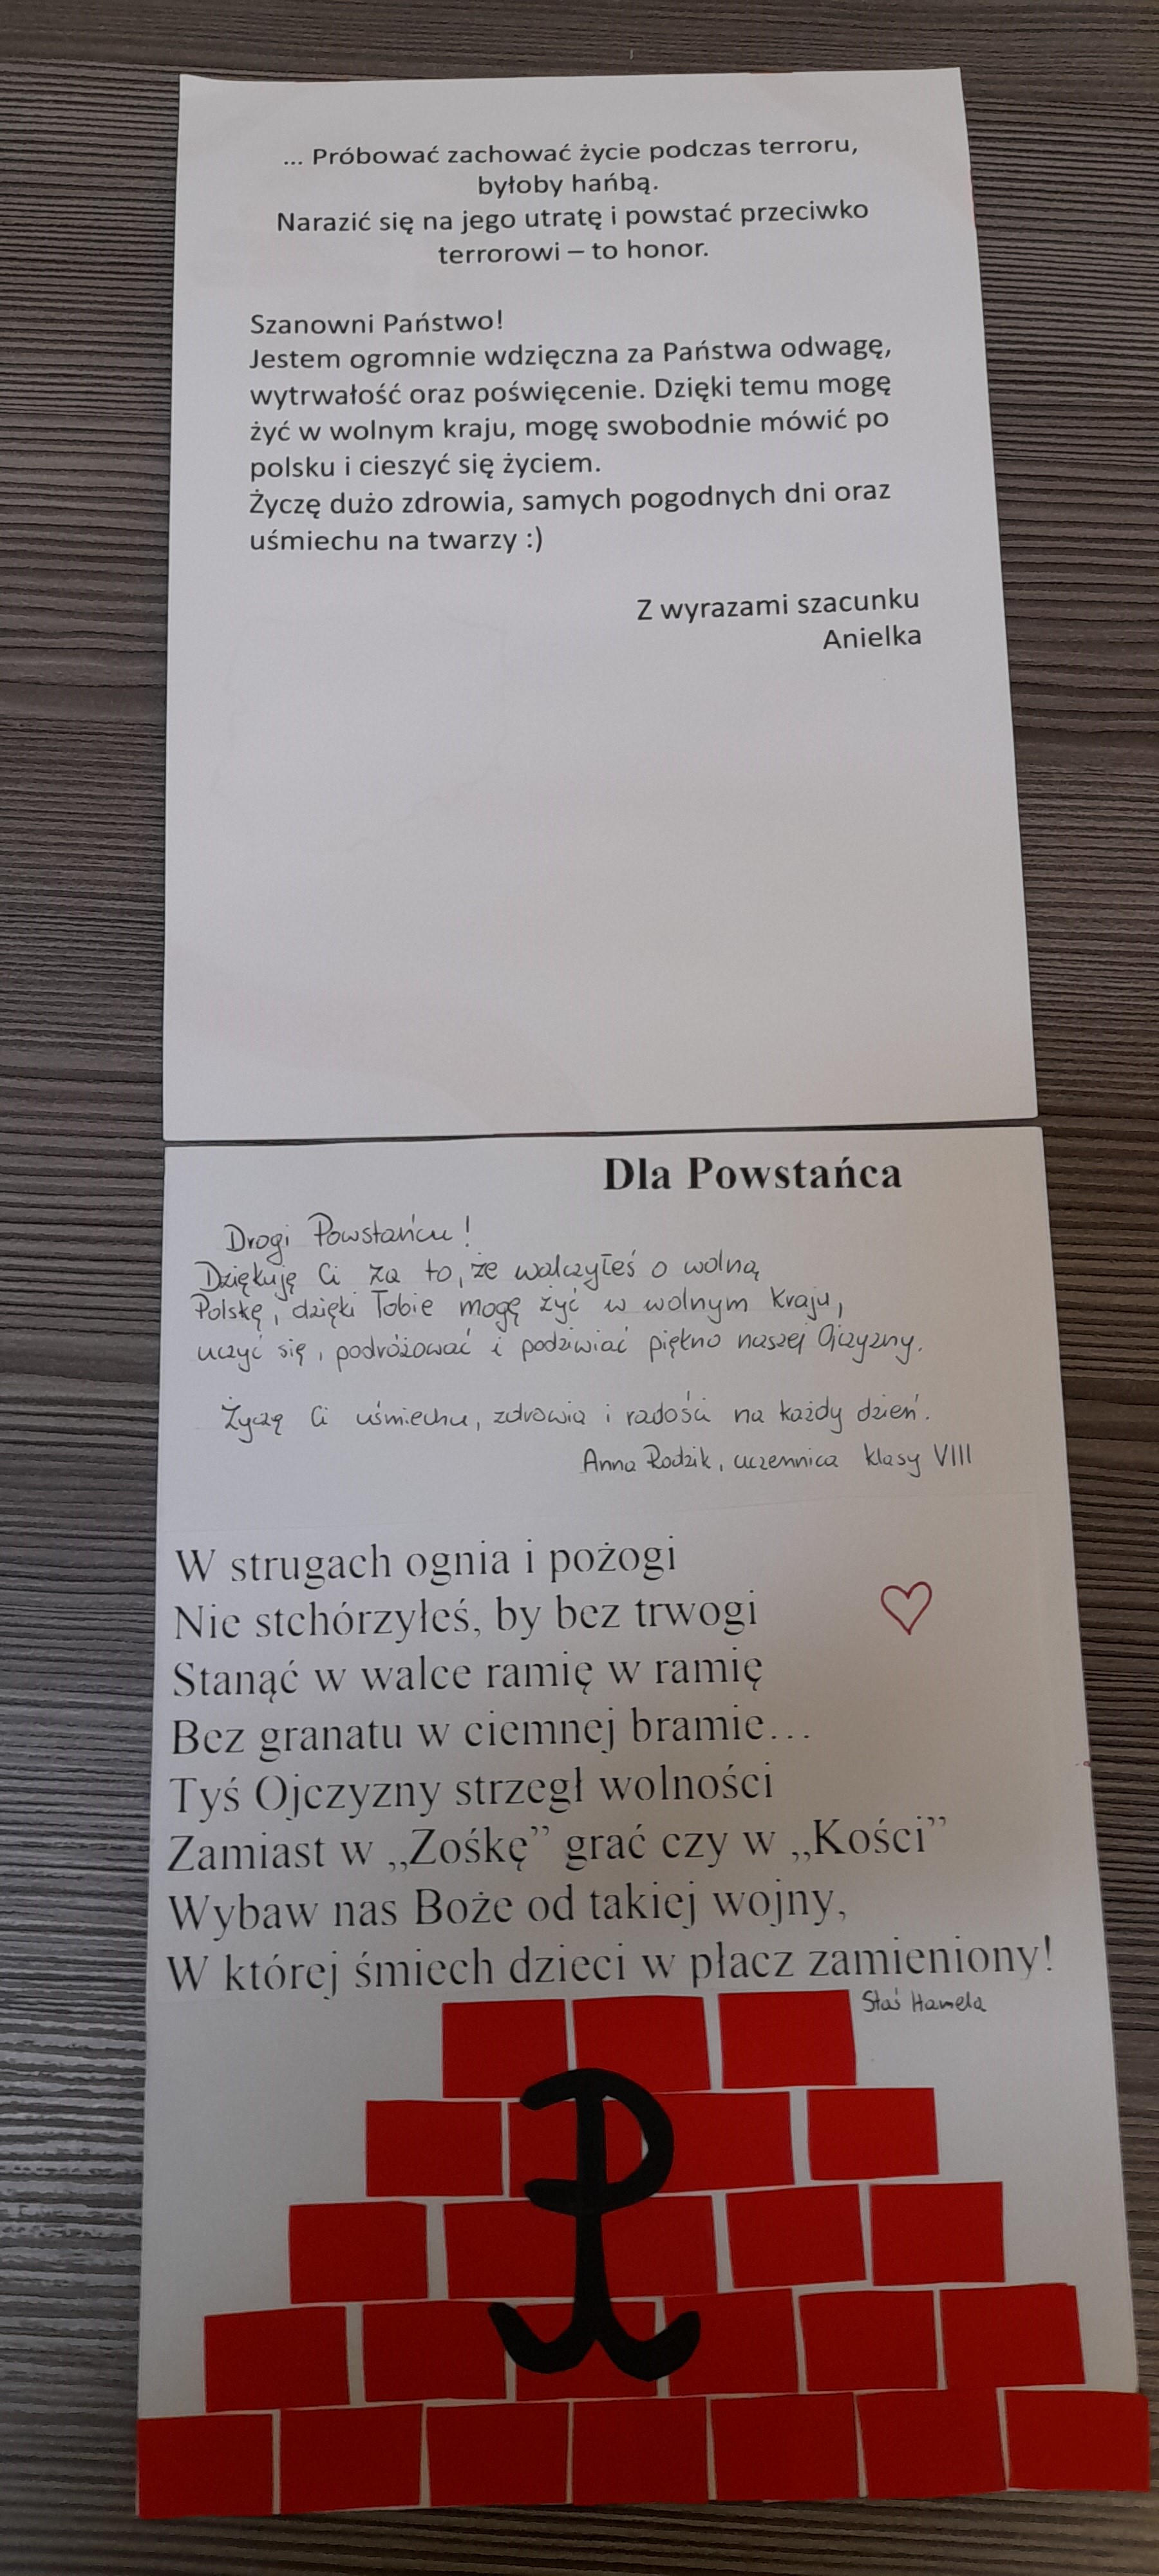 ... Próbować zachować życie podczas terroru,
byłoby hańbą.
Narazić się na jego utratę i powstać przeciwko
terrorowi – to honor.
Szanowni Państwo!
Jestem ogromnie wdzięczna za Państwa odwagę,
wytrwałość oraz poświęcenie. Dzięki temu mogę
żyć w wolnym kraju, mogę swobodnie mówić po
polsku i cieszyć się życiem.
Życzę dużo zdrowia, samych pogodnych dni oraz
uśmiechu na twarzy :)
Z wyrazami szacunku
Anielka
Dla Powstańca
Drogi Powstańcu!
Dziękuję Ci za to, że walczyłeś o wolną
Polskę, dzięki Tobie mogę żyć w wolnym kraju,
uczyć się, podróżować i podziwiać piękno naszej Ojczyzny.
Życzę Ci uśmiechu, zdrowia i radości na każdy dzień.
Anna Rodzik, uczennica klasy VIII
W strugach ognia i pożogi
Nie stchórzyłeś, by bez trwogi
Stanąć w walce ramię w ramię
Bez granatu w ciemnej bramie...
Tyś Ojczyzny strzegł wolności
Zamiast w „Zośkę” grać czy w „Kości”
Wybaw nas Boże od takiej wojny,
W której śmiech dzieci w płacz zamieniony!
Staś Hamela